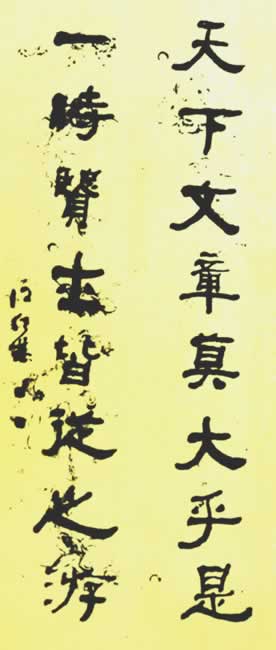 天下文章莫大乎是
一時賢士皆從之游